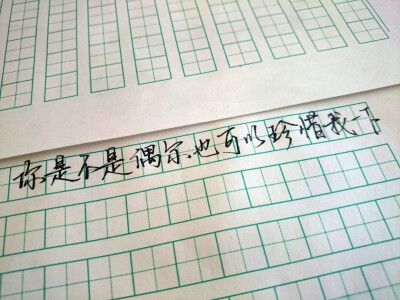 你是不是偶尔也可以珍惜我一下